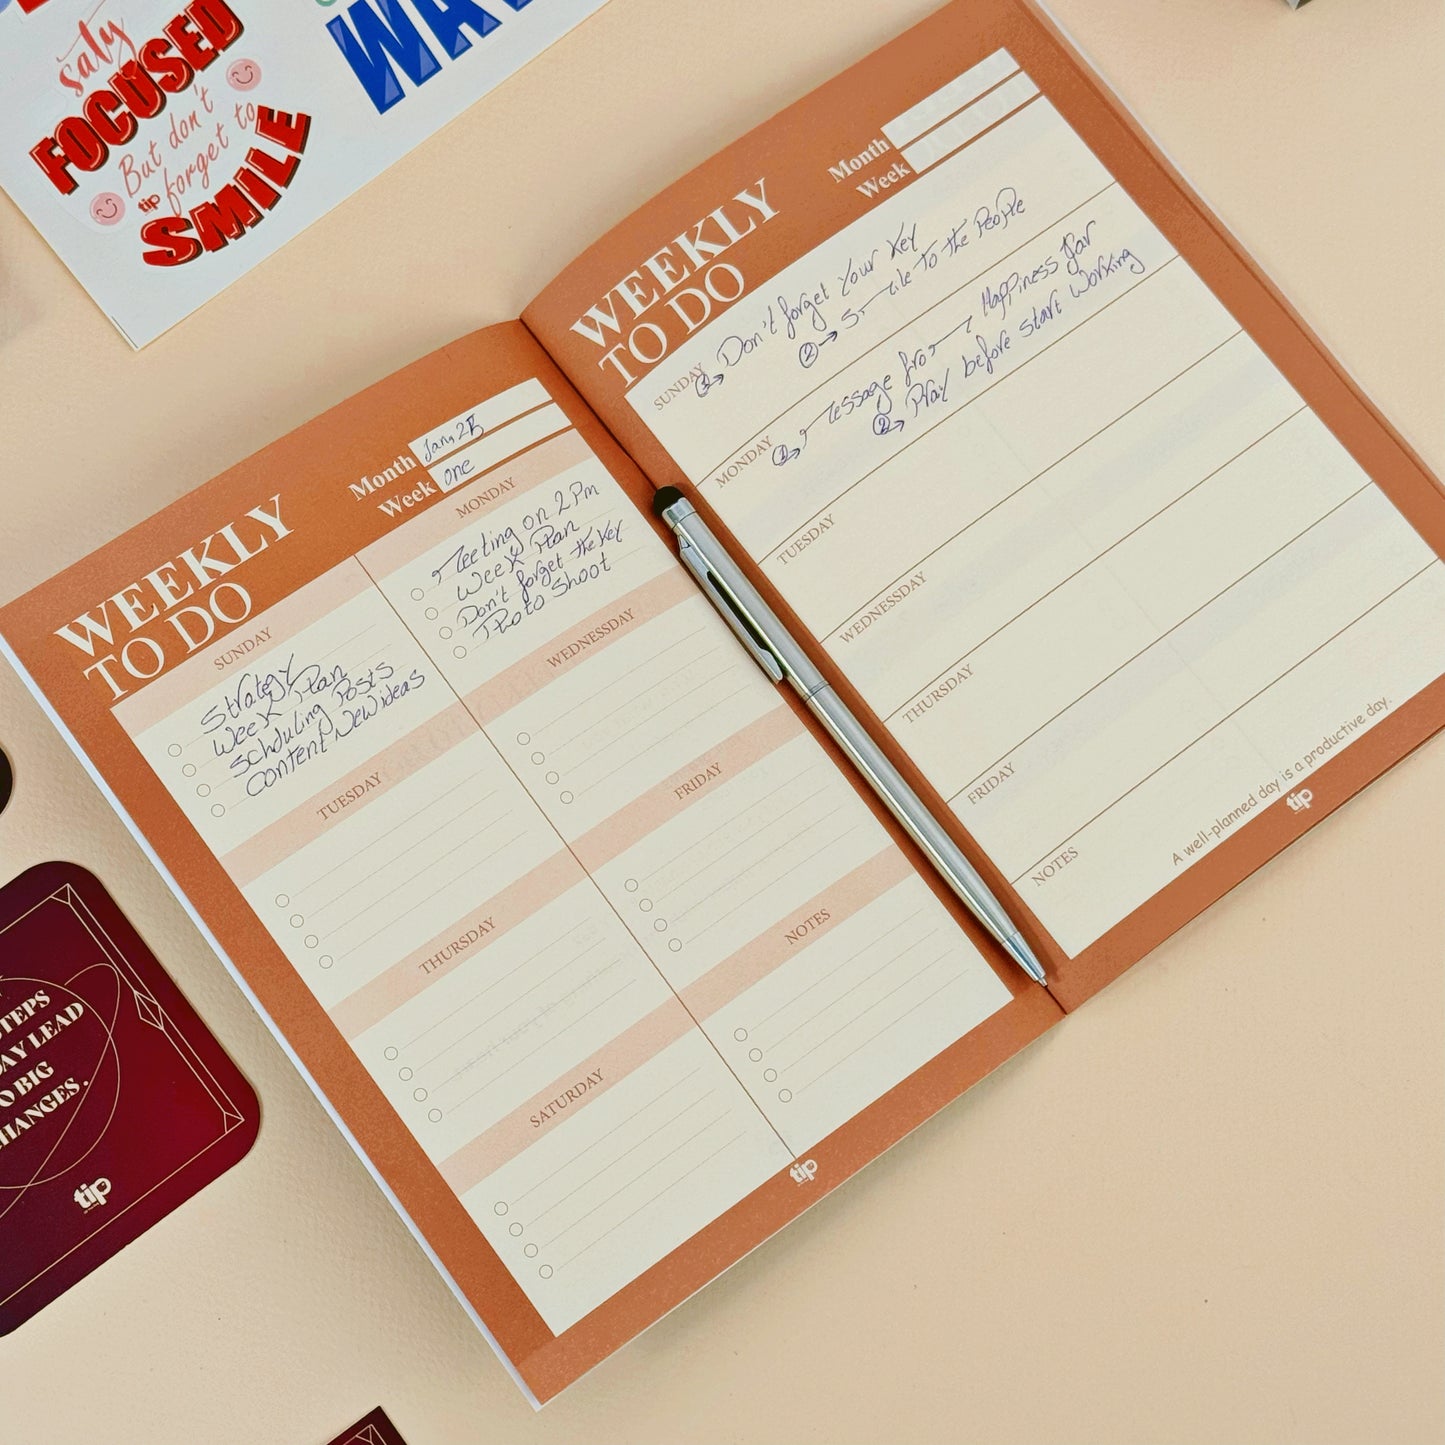 saty
FOCUSED
But don't
forget to
tip
SMILE
WAY
WEEKLY
TO DO
Month Jan, 25
Week one
SUNDAY
Strategy
Week Plan
Schduling Posts
Content New ideas
MONDAY
Meeting on 2 Pm
Week Plan
Don't forget the Key
Photo Shoot
TUESDAY
WEDNESDAY
THURSDAY
FRIDAY
SATURDAY
NOTES
tip
WEEKLY
TO DO
Month
Week
SUNDAY
① → Don't forget Your Key
② → Smile To the People
MONDAY
① → Message from Happiness for
② → Pray before start Working
TUESDAY
WEDNESDAY
THURSDAY
FRIDAY
NOTES
A well-planned day is a productive day.
tip
STEPS
DAY LEAD
TO BIG
CHANGES.
tip